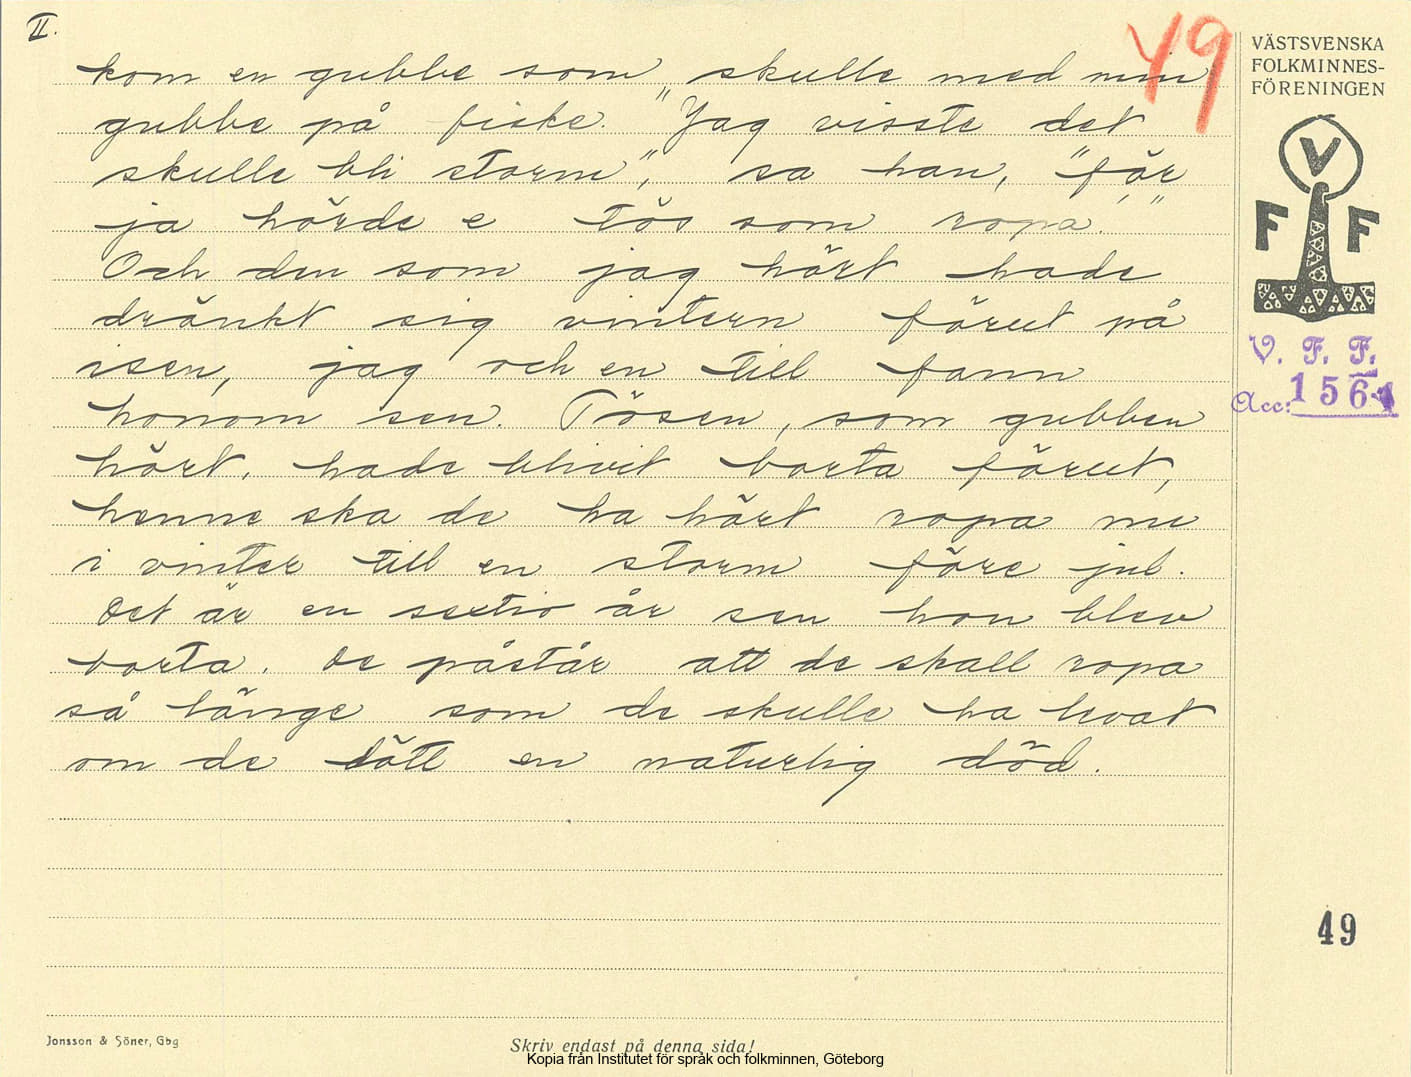 II.
49
kom en gubbe som skulle med min
gubbe på fiske. "Jag visste det
skulle bli storm", sa han, "för
ja hörde e tös som ropa."
Och den som jag hört hade
dränkt sig vintern förut på
isen, jag och en till fann
honom sen. Tösen, som gubben
hört, hade blivit borta förut,
henne ska de ha hört ropa nu
i vinter till en storm före jul.
Det är en sextio år sen hon blev
borta. De påstår att de skall ropa
så länge som de skulle ha levat
om de dött en naturlig död.
VÄSTSVENSKA
FOLKMINNES-
FÖRENINGEN
V
F F
V. F. F.
Acc: 156
49
Jonsson & Söner, Gbg
Skriv endast på denna sida!
Kopia från Institutet för språk och folkminnen, Göteborg